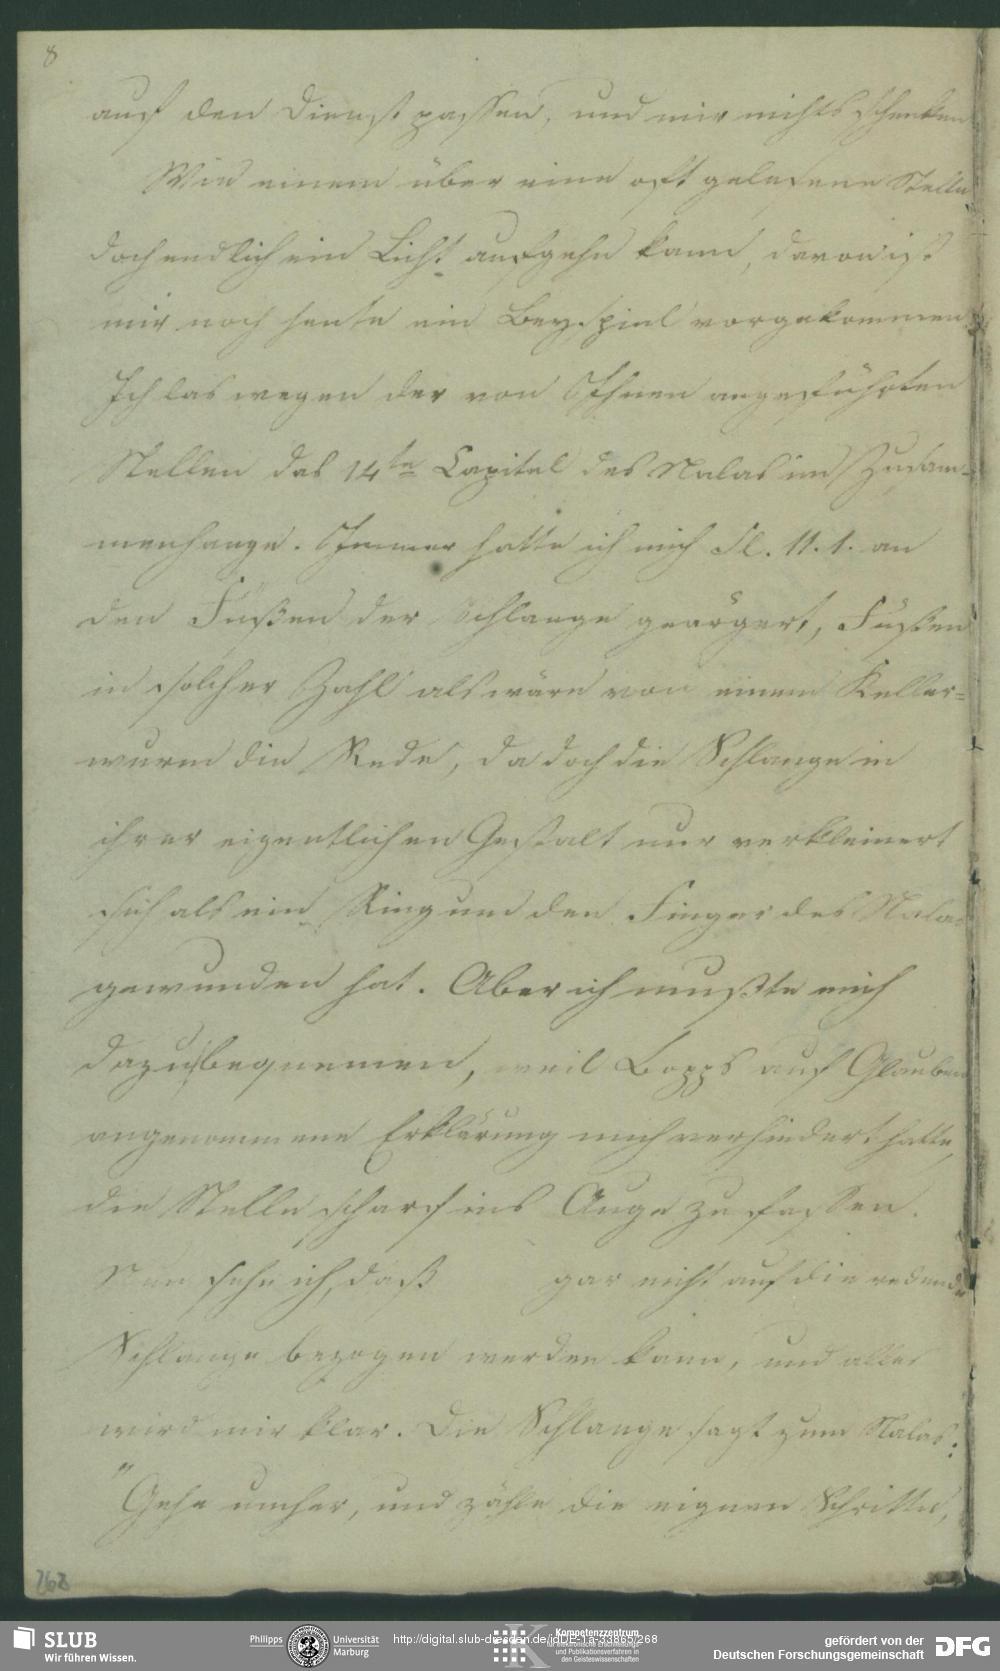 8
auf den Dienst passen, und mir nichts schenken
Wie einem über eine oft gelesene Stelle
doch endlich ein Licht aufgehn kann, davon ist
mir noch heute ein Beyspiel vorgekommen.
Ich las wegen der von Ihnen angeführten
Stellen das 14te Capitel des Nalas im Zusam-
menhange. Immer hatte ich mich Sl. 11. 1. an
den Füßen der Schlange geärgert, Füßen
in solcher Zahl als wäre von einem Keller-
wurm die Rede, da doch die Schlange in
ihrer eigentlichen Gestalt nur verkleinert
sich als ein Ring um den Finger des Nalas
gewunden hat. Aber ich mußte mich
dazu bequemen, weil Bopps auf Glauben
angenommene Erklärung mich verhindert hatte,
die Stelle scharf ins Auge zu fassen.
Nun sehe ich, daß gar nicht auf die redende
Schlange bezogen werden kann, und alles
wird mir klar. Die Schlange sagt zum Nalas:
"Gehe umher, und zähle die eignen Schritte,
268
SLUB
Wir führen Wissen.
Philipps Universität
Marburg
http://digital.slub-dresden.de/idDE-1a-33865/268
Kompetenzzentrum
für elektronische Erschließungs-
und Publikationsverfahren in
den Geisteswissenschaften
gefördert von der
Deutschen Forschungsgemeinschaft
DFG